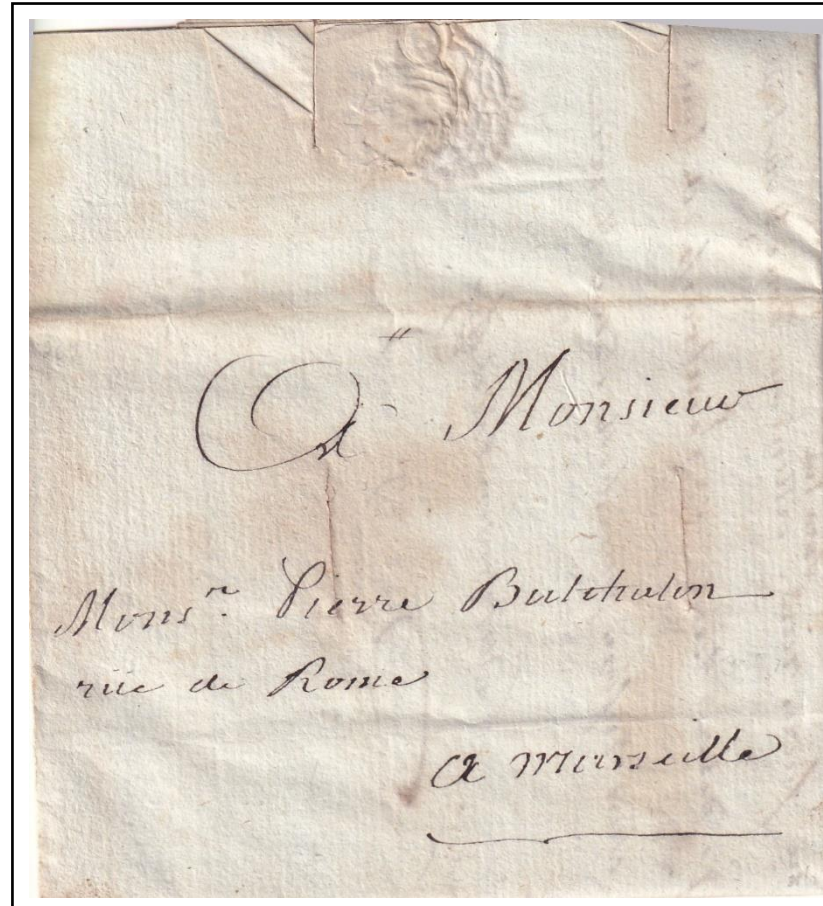 A Monsieur
Monsr. Pierre
rüe de Rome
a marseille